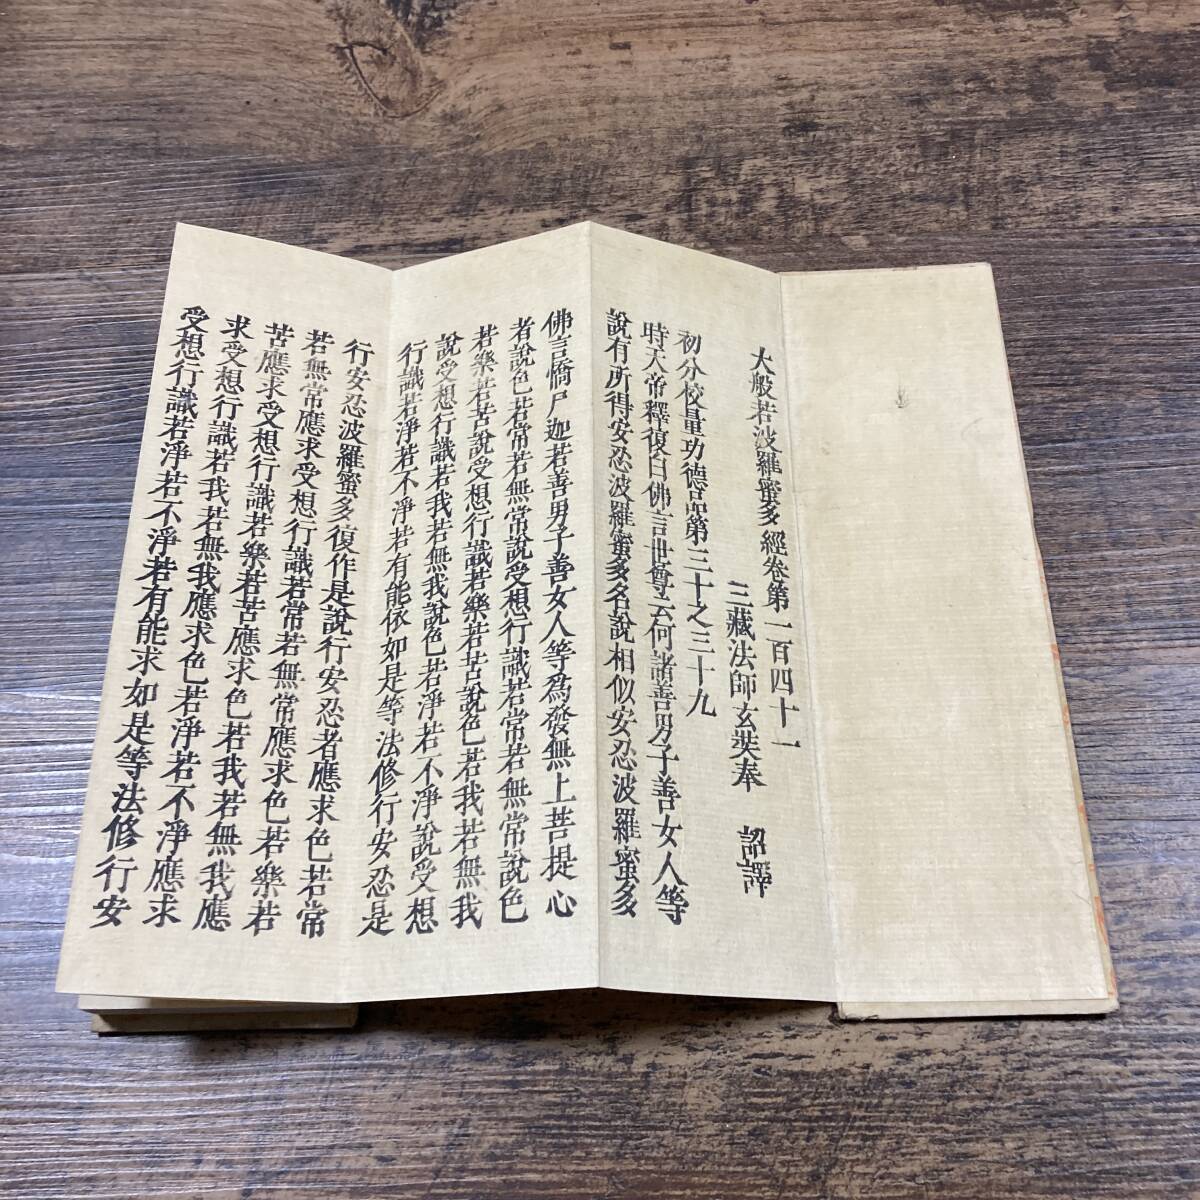 大般若波羅蜜多經卷第一百四十一
三藏法師玄奘奉　詔譯
初分校量功德品第三十之三十九
時天帝釋復白佛言世尊云何諸善男子善女人等
說有所得安忍波羅蜜多名說相似安忍波羅蜜多
佛言憍尸迦若善男子善女人等為發無上菩提心
者說色若常若無常說受想行識若常若無常說色
若樂若苦說受想行識若樂若苦說色若我若無我
說受想行識若我若無我說色若淨若不淨說受想
行識若淨若不淨若有能依如是等法修行安忍是
行安忍波羅蜜多復作是說行安忍者應求色若常
若無常應求受想行識若常若無常應求色若樂若
苦應求受想行識若樂若苦應求色若我若無我應
求受想行識若我若無我應求色若淨若不淨應求
受想行識若淨若不淨若有能求如是等法修行安